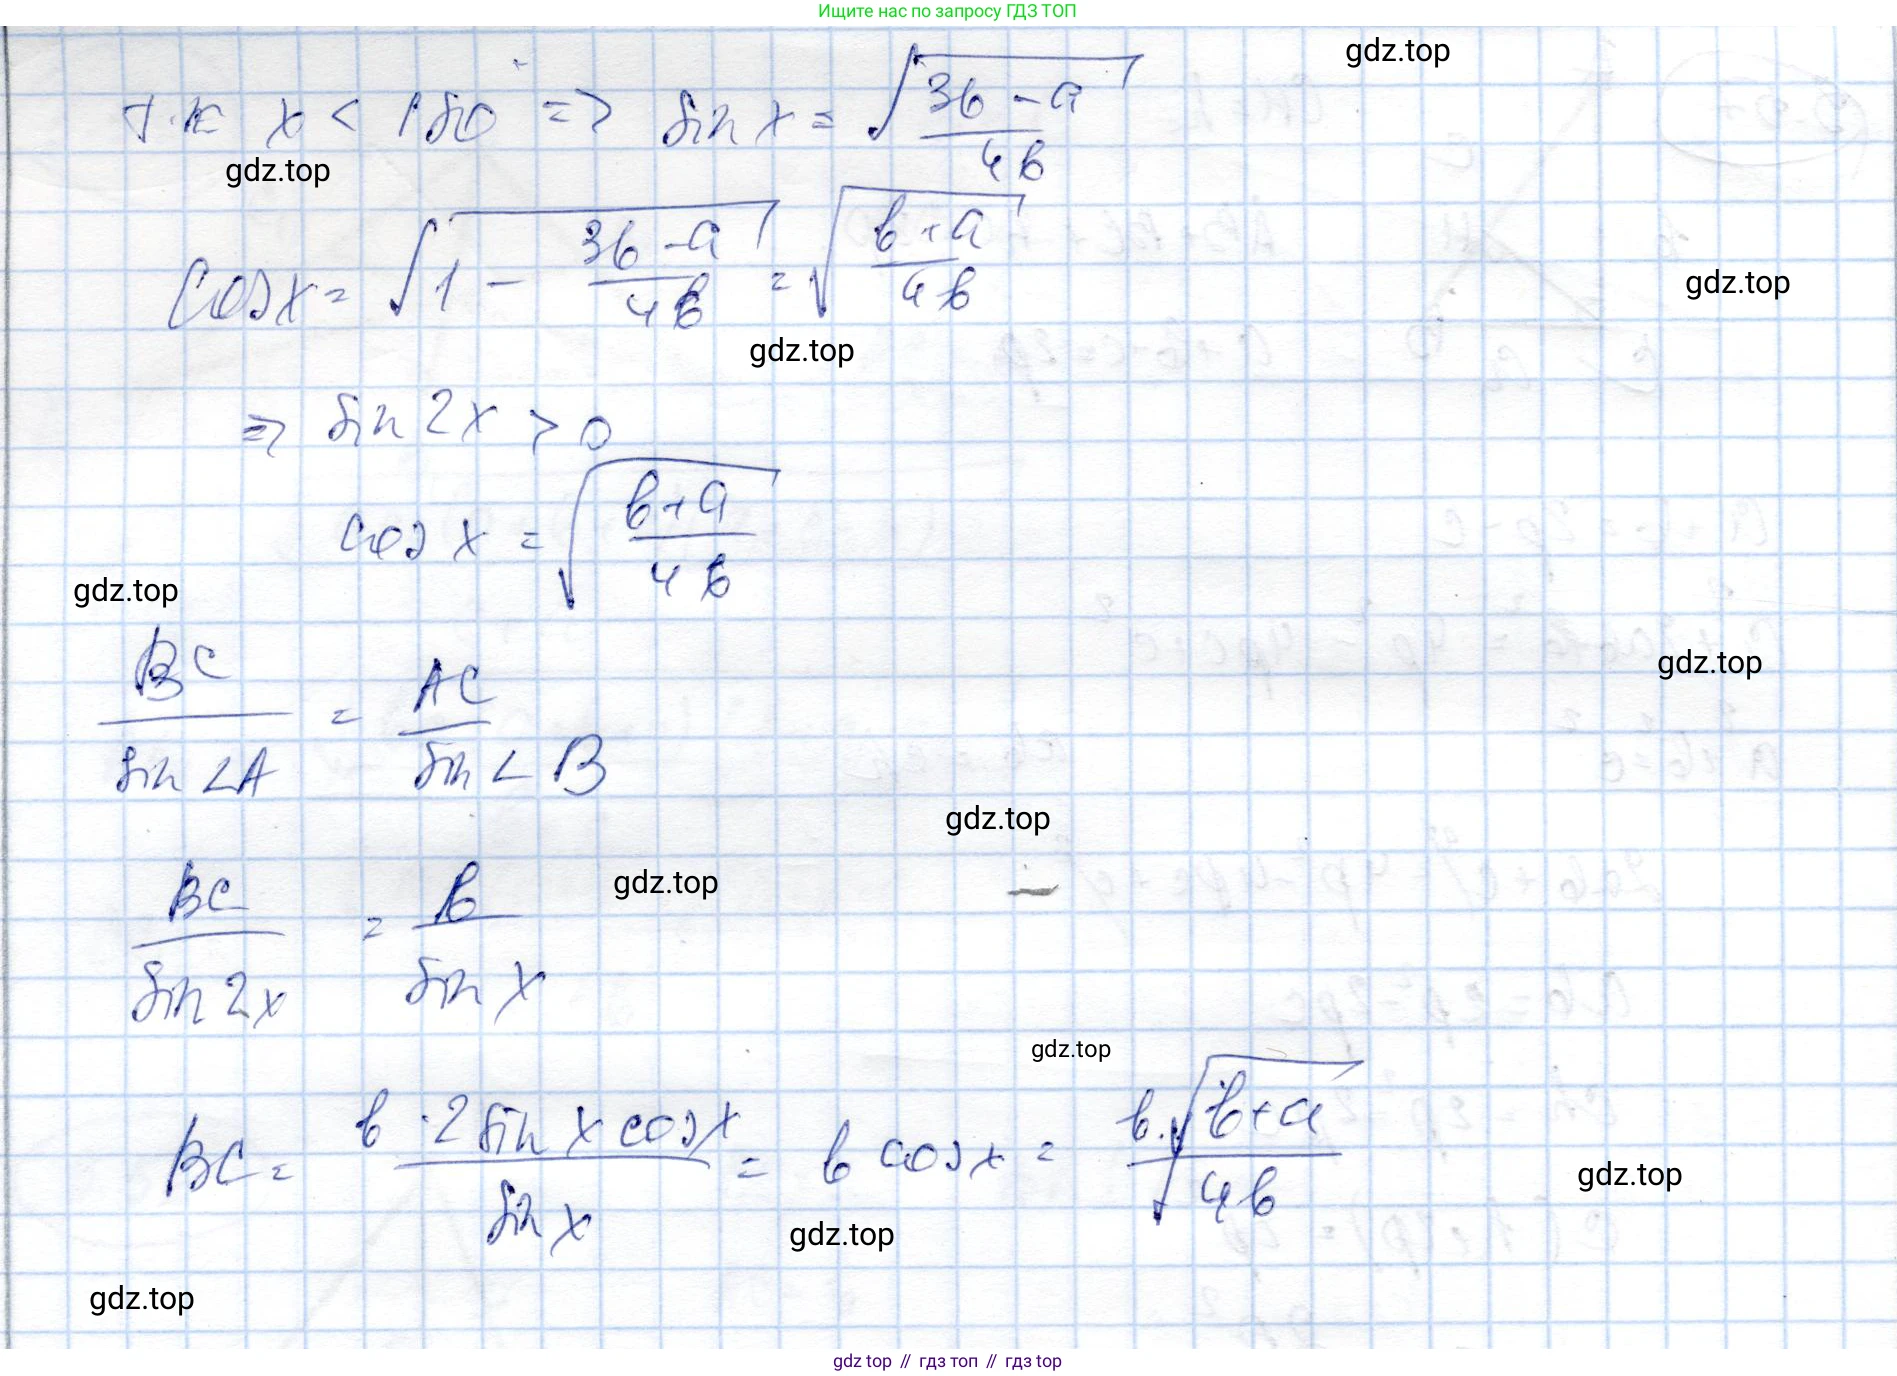 Ищите нас по запросу ГДЗ ТОП
gdz.top
т.к x < 180° => sin x = √((3b - a)/(4b))
gdz.top
cos x = √(1 - (3b - a)/(4b)) = √((b + a)/(4b))
gdz.top
gdz.top
=> sin 2x > 0
cos x = √((b + a)/(4b))
gdz.top
BC/(sin ∠A) = AC/(sin ∠B)
gdz.top
gdz.top
BC/(sin 2x) = b/(sin x)
gdz.top
gdz.top
BC = (b · 2 sin x cos x)/(sin x) = b cos x = b · √((b + a)/(4b))
gdz.top
gdz.top
gdz.top
gdz top // гдз топ // гдз top